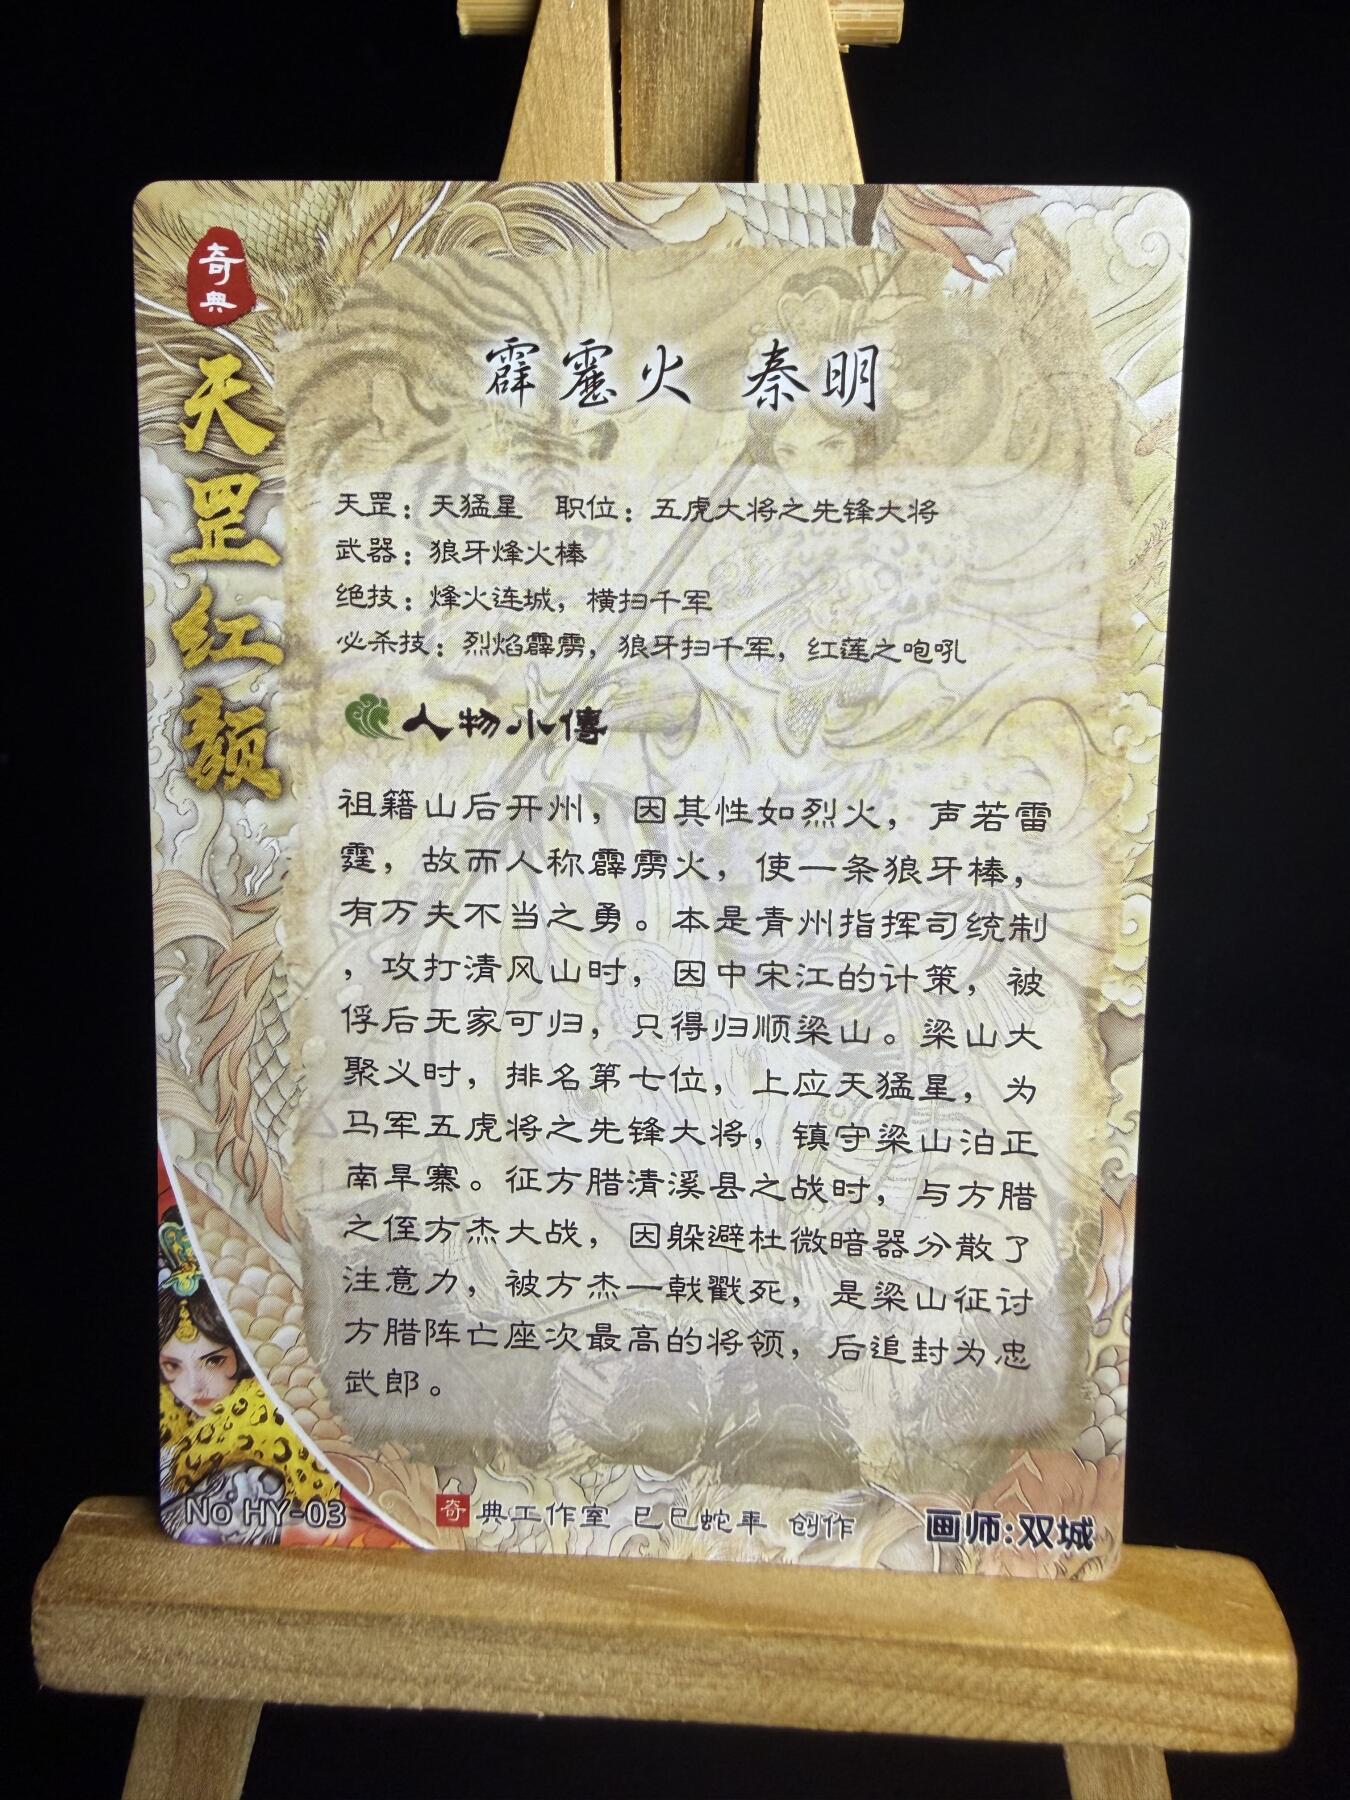 奇典
天罡红颜
霹雳火 秦明
天罡：天猛星 职位：五虎大将之先锋大将
武器：狼牙烽火棒
绝技：烽火连城，横扫千军
必杀技：烈焰霹雳，狼牙扫千军，红莲之咆吼
人物小傳
祖籍山后开州，因其性如烈火，声若雷
霆，故而人称霹雳火，使一条狼牙棒，
有万夫不当之勇。本是青州指挥司统制
，攻打清风山时，因中宋江的计策，被
俘后无家可归，只得归顺梁山。梁山大
聚义时，排名第七位，上应天猛星，为
马军五虎将之先锋大将，镇守梁山泊正
南旱寨。征方腊清溪县之战时，与方腊
之侄方杰大战，因躲避杜微暗器分散了
注意力，被方杰一戟戳死，是梁山征讨
方腊阵亡座次最高的将领，后追封为忠
武郎。
No HY-03
奇典工作室 已巳蛇年 创作
画师:双城